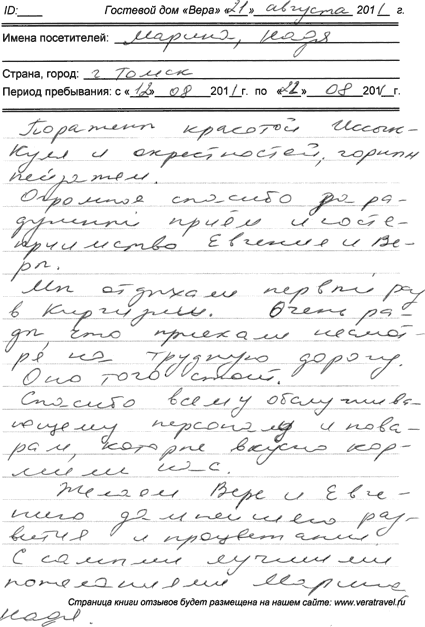 ID:___ Гостевой дом «Вера» «21» августа 2011 г.
Имена посетителей: Марина, Надя
Страна, город: г Томск
Период пребывания: с «12» 08 2011 г. по «22» 08 2011 г.
Поражены красотой Иссык-
Куля и окрестностей, горным
пейзажем.
Огромное спасибо за ра-
душный приём и госте-
приимство Евгения и Ве-
ры.
Мы отдыхали первый раз
в Киргизии. Очень ра-
ды, что приехали несмот-
ря на трудную дорогу.
Оно того стоит.
Спасибо всему обслужива-
ющему персоналу и пова-
рам, которые вкусно кор-
мили нас.
Желаем Вере и Евге-
нию дальнейшего раз-
вития и процветания.
С самыми лучшими
пожеланиями Марина
Надя.
Страница книги отзывов будет размещена на нашем сайте: www.veratravel.ru